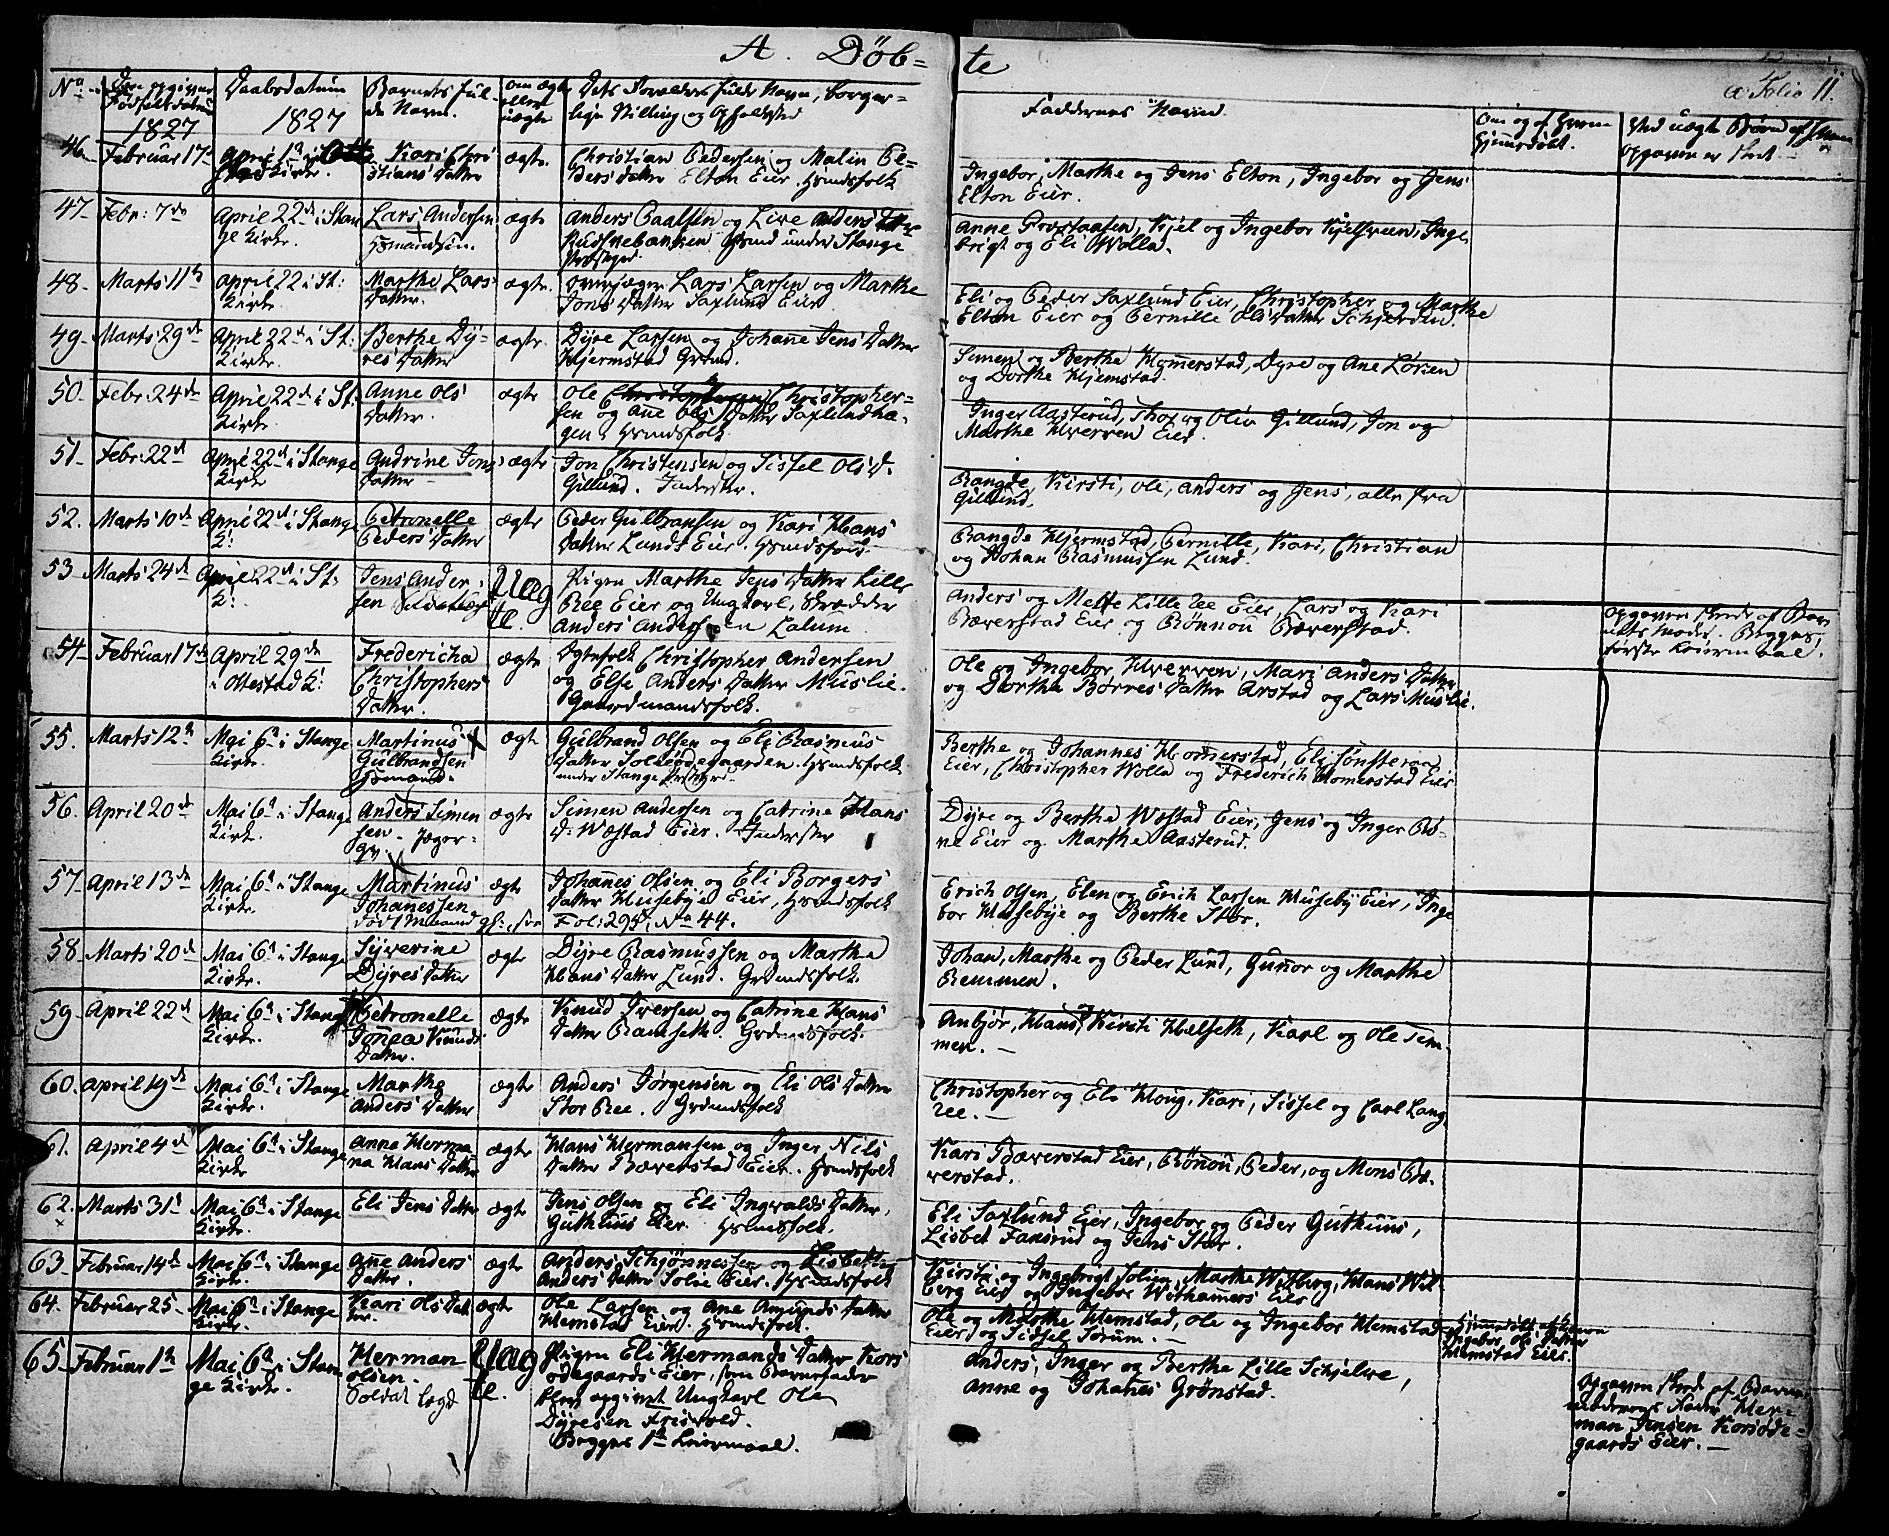 A. Döb=
te
a Folio 11.
No
Den opgivne Fødselsdatum
1827
Daabsdatum
1827
Barnets fulde Navn.
om ægte eller uægte
Dets Forældres fulde Navn, borger=
lige Stilling og Opholdsted
Faddernes Navne.
Om og af hvem
hjemmedøbt.
Ved uægte Børn af hvem
Opgaven er skeet.
46. Februar 17
April 1 Kirke.
Kari Christians Datter
ægte.
Christian Pedersen og Malin Pe=
ders Datter Elton Eier. Huusmandsfolk
Ingebor, Marthe og Jens Elton, Ingebor og Jens
Elton Eier.
47. Febr: 7de
April 22d i Stan
ge Kirke.
Lars Andersen
Huusmandssøn.
ægte
Anders Paalsen og Live Anders Datter
under Stange
Præstegd.
Anne Kjel og Ingebor Inge
brigt og Eli Wolla.
48. Marts 11te
April 22 i St:
Kirke.
Marthe Lars
Datter.
ægte.
Lars Larsen og Marthe
Jons Datter Saxlund Eier
Eli og Peder Saxlund Eier, Christopher og Marthe
Elton Eier og Pernille Ols Datter Schjerden.
49. Marts 29de
April 22d i St:
Kirke.
Berthe Dy=
res Datter
ægte.
Dyre Larsen og Johanne Jens Datter
Hjermstad Grmd.
Simen og Berthe Hommerstad, Dyre og Ane Lorien
og Dorthe Hjemstad.
50. Febr: 24de
April 22d i St:
Kirke.
Anne Ols
Datter.
ægte
Ole Christopher=
sen og Ane Ols Datter Saxlundha=
gen. Huusmandsfolk
Inger Aasterud, Thor og Oliv Gillund, Jon og
Marthe Hverven Eier.
51. Febr: 22d
April 22d i Stange
Kirke
Andrine Jons
Datter
ægte
Jon Christensen og Sissel Ols D.
Gillund. Inderster.
Rangde, Kirsti, Ole, Anders og Jens, alle fra
Gillund.
52. Marts 10de
April 22d i Stange
K:
Petronelle
Peders Datter
ægte
Peder Gulbransen og Kari Hans
Datter Lunds Eier. Huusmandsfolk
Rangde Hjermstad, Pernille, Kari, Christian
og Johan Rasmussen Lund.
53 Marts 24de
April 22d i St:
K:
Jens Ander
sen
Uæg
te.
Pigen Marthe Jens Datter Lille
Ree Eier og Ungkarl, Skrædder
Anders Andersen Lalum
Anders og Mette Lille Ree Eier, Lars og Kari
Bæverstad Eier og Rønnou Bæverstad.
Opgaven skede af Bar
nets Moder. Begges
første Leiermaal.
54. Februar 17de
April 29de
i Ottestad K:
Fredericha
Christophers
Datter.
ægte
Ægtefolk Christopher Andersen
og Else Anders Datter Muslie.
Gaardmandsfolk.
Ole og Ingebor Hverven, Mari Anders Datter
og Dorthe Børres Datter Arstad og Lars Muslie.
55. Marts 12te
Mai 6te i Stange
Kirke.
Martinus
Gulbrandsen
ægte
Gulbrand Olsen og Eli Rasmus
Datter Huusmandsfolk
under Stange Præstegd.
Berthe og Johannes Hommerstad, Eli
Eier, Christopher Wolla og Frederich Homerstad Eier
56. April 20de
Mai 6te i Stange
Kirke.
Anders Simen
sen.
ægte
Simen Andersen og Catrine Hans
D: Wæstad Eier. Inderster
Dyre og Berthe Wæstad Eier, Jens og Inger Rø=
ne Eier og Marthe Aasterud.
57. April 13de
Mai 6te i Stange
Kirke.
Martinus
Johannessen
død 1 Maaned gl:, see
ægte
Johanes Olsen og Eli Borgers
Datter Husebye Eier, Huusmandsfolk
Fol: 295, No 44.
Erich Olsen, Elen og Erich Larsen Huseby Eier, Inge
bor Husebye og Berthe Stor.
58. Marts 20de
Mai 6te i Stange
Kirke.
Syverine
Dyres Datter
ægte
Dyre Rasmussen og Marthe
Hans Datter Lund. Grdmandsfolk.
Johan, Marthe og Peder Lund, Gunor og Marthe
Remmen.
59. April 22d
Mai 6te i Stange
Kirke.
Petronelle
Jonea Knuds
Datter.
ægte
Knud Iversen og Catrine Hans
Datter Ramseth. Grdmandsfolk.
Anbjør, Hans, Kirsti Helseth, Karl og Ole Rem
men.
60. April 19de
Mai 6te i Stange
Kirke.
Marthe
Anders Datter
ægte
Anders Jørgensen og Eli Ols Datter
Stor Ree. Grdmandsfolk
Christopher og Eli Houg, Kari, Sissel og Carl Lang
ree.
61. April 4de
Mai 6te i Stange
Kirke
Anne Herma
na Hans Datter
ægte
Hans Hermansen og Inger Nils
Datter Bæverstad Eier. Huusmandsfolk
Kari Bæverstad Eier, Rønou, Peder, og Mons Bæ
verstad.
62. Marts 31te
Mai 6te i Stange
Kirke.
Eli Jens Datter
ægte
Jens Olsen og Eli Ingvalds Datter,
Guthuus Eier. Huusmandsfolk.
Eli Saxlund Eier, Ingebor og Peder Guthuus,
Lisbet Fansrud og Jens Stor.
63. Februar 14de
Mai 6te i Stange
Kirke.
Ane Anders
Datter.
ægte
Anders Schjönnessen og Lisbeth
Anders Datter Solie Eier. Huusmandsfolk
Kirsti og Ingebrigt Solien, Marthe Witberg, Hans Wit
berg Eier og Ingebor Withamers Eier
64. Februar 25
Mai 6te i Stange
Kirke.
Kari Ols Dat
ter.
ægte
Ole Larsen og Ane Amunds Datter
Hemstad Eier. Huusmandsfolk.
Ole og Marthe Hemstad, Ole og Ingebor Hemstad
Eier og Sissel Sorum.
Hjemmedøbt af Konen
Ingebor Ols Datter
Hemstad Eier.
65. Februar 1te
Mai 6te i Stan
ge Kirke.
Herman
Olsen.
Soldat Legd
Uæg
te.
Pigen Eli Hermands Datter Kors
ødegaards Eier, som Barnefader
blev opgivet Ungkarl Ole
Dyresen Frisvold.
Begges 1te Leiermaal.
Anders, Inger og Berthe Lille Schjelve,
Anne og Johanes Grønstad.
Opgaven skede af Barne
moderens Fader Her=
man Jensen Korsøde=
gaards Eier.